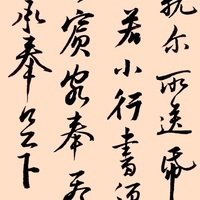 尔所送
若小行書須
賓客奉
承奉足下